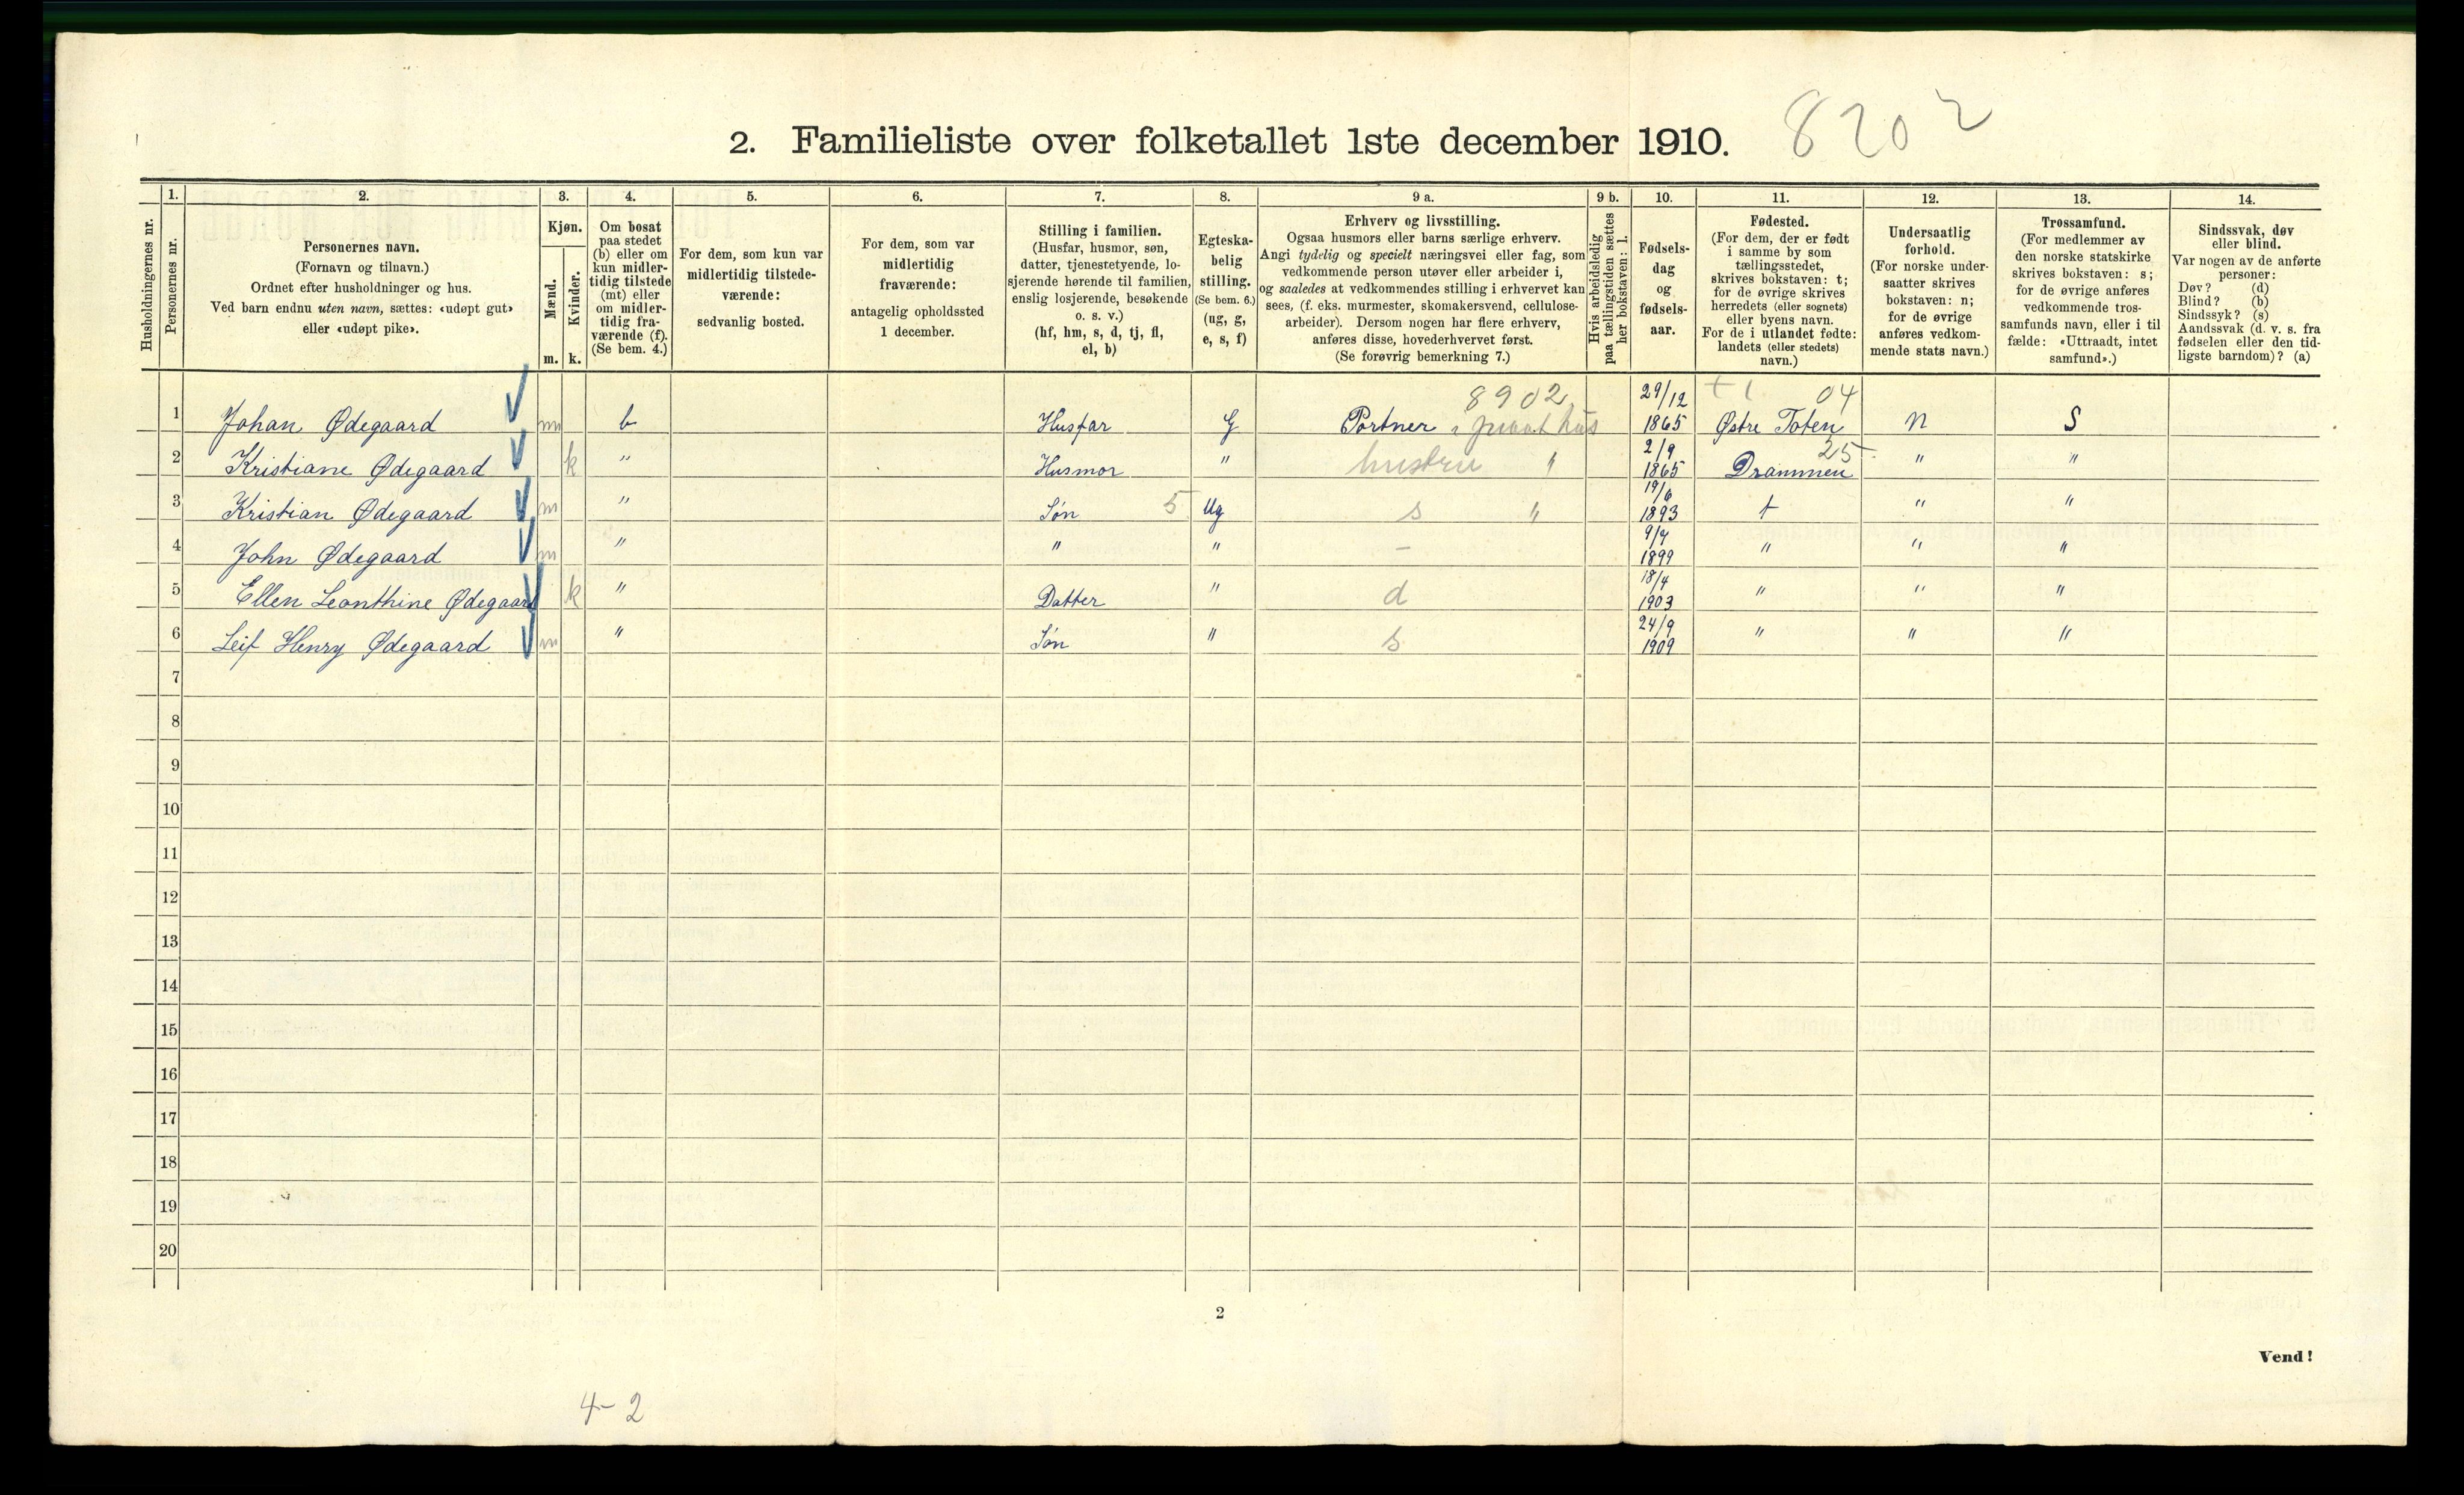 8202
2. Familieliste over folketallet 1ste december 1910.
Husholdningernes nr.
1.
Personernes nr.
2.
Personernes navn.
(Fornavn og tilnavn.)
Ordnet efter husholdninger og hus.
Ved barn endnu uten navn, sættes: «udøpt gut»
eller «udøpt pike».
3.
Kjøn.
Mænd.
m.
Kvinder.
k.
4.
Om bosat
paa stedet
(b) eller om
kun midler-
tidig tilstede
(mt) eller
om midler-
tidig fra-
værende (f).
(Se bem. 4.)
5.
For dem, som kun var
midlertidig tilstede-
værende:
sedvanlig bosted.
6.
For dem, som var
midlertidig
fraværende:
antagelig opholdssted
1 december.
7.
Stilling i familien.
(Husfar, husmor, søn,
datter, tjenestetyende, lo-
sjerende hørende til familien,
enslig losjerende, besøkende
o. s. v.)
(hf, hm, s, d, tj, fl,
el, b)
8.
Egteska-
belig
stilling.
(Se bem. 6.)
(ug, g,
e, s, f)
9 a.
Erhverv og livsstilling.
Ogsaa husmors eller barns særlige erhverv.
Angi tydelig og specielt næringsvei eller fag, som
vedkommende person utøver eller arbeider i,
og saaledes at vedkommendes stilling i erhvervet kan
sees, (f. eks. murmester, skomakersvend, cellulose-
arbeider). Dersom nogen har flere erhverv,
anføres disse, hovederhvervet først.
(Se forøvrig bemerkning 7.)
9 b.
Hvis arbeidsledig
paa tællingstiden sættes
her bokstaven: l.
10.
Fødsels-
dag
og
fødsels-
aar.
11.
Fødested.
(For dem, der er født
i samme by som
tællingsstedet,
skrives bokstaven: t;
for de øvrige skrives
herredets (eller sognets)
eller byens navn.
For de i utlandet fødte:
landets (eller stedets)
navn.)
12.
Undersaatlig
forhold.
(For norske under-
saatter skrives
bokstaven: n;
for de øvrige
anføres vedkom-
mende stats navn.)
13.
Trossamfund.
(For medlemmer av
den norske statskirke
skrives bokstaven: s;
for de øvrige anføres
vedkommende tros-
samfunds navn, eller i til
fælde: «Uttraadt, intet
samfund».)
14.
Sindssvak, døv
eller blind.
Var nogen av de anførte
personer:
Døv? (d)
Blind? (b)
Sindssyk? (s)
Aandssvak (d. v. s. fra
fødselen eller den tid-
ligste barndom)? (a)
8902 29/12 04
1 Johan Ødegaard m b Husfar G Portner i privat hus 1865 Østre Toten n S
2/9 25
2 Kristiane Ødegaard k " Husmor " hustru " 1865 Drammen " "
19/6
3 Kristian Ødegaard m " Søn 5 Ug s " 1893 t " "
9/4
4 John Ødegaard m " " " – 1899 " " "
18/4
5 Ellen Leonthine Ødegaard k " Datter " d 1903 " " "
24/9
6 Leif Henry Ødegaard m " Søn " s 1909 " " "
7
8
9
10
11
12
13
14
15
16
17
18
19
20
2
Vend!
4-2